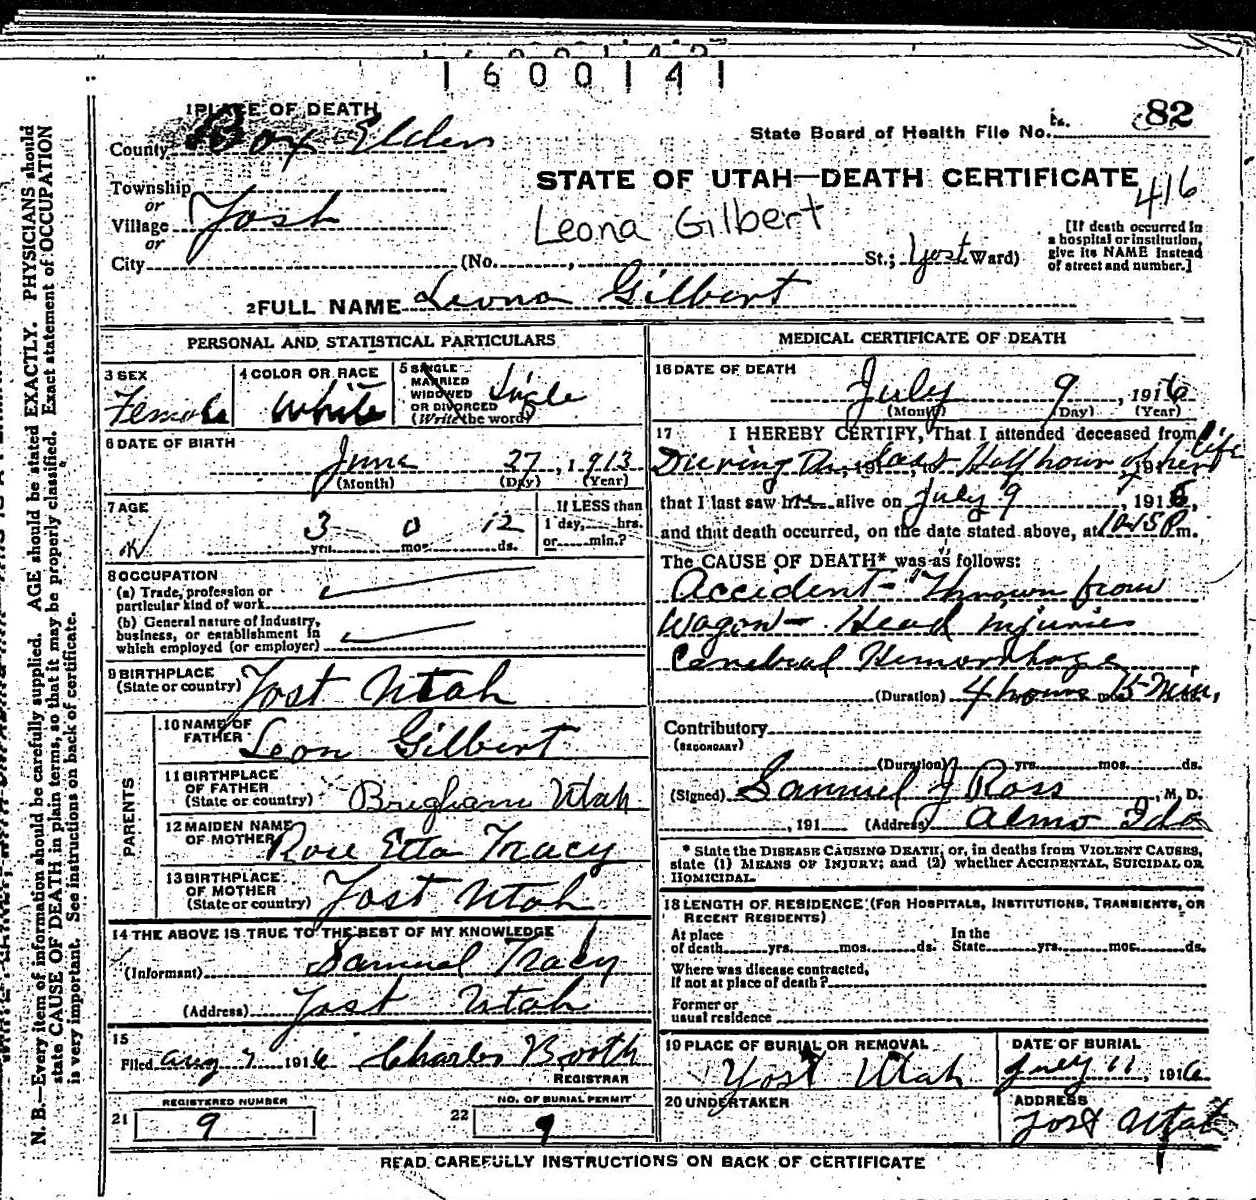 1600141
1 PLACE OF DEATH
County Box Elder
State Board of Health File No. 82
Township
or
Village Yost
or
City
STATE OF UTAH—DEATH CERTIFICATE
416
Leona Gilbert
(No. , St.; Yost Ward)
[If death occurred in
a hospital or institution,
give its NAME instead
of street and number.]
2 FULL NAME Leona Gilbert
PERSONAL AND STATISTICAL PARTICULARS
3 SEX
Female
4 COLOR OR RACE
White
5 SINGLE
MARRIED
WIDOWED
OR DIVORCED
(Write the word)
Single
6 DATE OF BIRTH
June 27, 1913
(Month) (Day) (Year)
7 AGE
3 yrs. 0 mos. 12 ds.
If LESS than
1 day, hrs.
or min.?
8 OCCUPATION
(a) Trade, profession or
particular kind of work
(b) General nature of Industry,
business, or establishment in
which employed (or employer)
9 BIRTHPLACE
(State or country) Yost Utah
PARENTS
10 NAME OF
FATHER Leon Gilbert
11 BIRTHPLACE
OF FATHER
(State or country) Brigham Utah
12 MAIDEN NAME
OF MOTHER Rose Etta Tracy
13 BIRTHPLACE
OF MOTHER
(State or country) Yost Utah
14 THE ABOVE IS TRUE TO THE BEST OF MY KNOWLEDGE
(Informant) Samuel Tracy
(Address) Yost Utah
15
Filed Aug 7 1916 Charles Booth
REGISTRAR
21 REGISTERED NUMBER
9
22 NO. OF BURIAL PERMIT
9
MEDICAL CERTIFICATE OF DEATH
16 DATE OF DEATH
July 9, 1916
(Month) (Day) (Year)
17 I HEREBY CERTIFY, That I attended deceased from
During The last Half hour of her life
that I last saw her alive on July 9, 1916,
and that death occurred, on the date stated above, at 10-15 P m.
The CAUSE OF DEATH* was as follows:
Accident - Thrown from
Wagon - Head injuries
Cerebral Hemorrhage
(Duration) 4 hours 15 Min.
Contributory
(SECONDARY)
(Duration) yrs. mos. ds.
(Signed) Samuel J Ross, M. D.
, 191 (Address) Almo Ida
* State the DISEASE CAUSING DEATH, or, in deaths from VIOLENT CAUSES,
state (1) MEANS OF INJURY; and (2) whether ACCIDENTAL, SUICIDAL OR
HOMICIDAL.
18 LENGTH OF RESIDENCE (FOR HOSPITALS, INSTITUTIONS, TRANSIENTS, OR
RECENT RESIDENTS)
At place
of death yrs. mos. ds.
In the
State yrs. mos. ds.
Where was disease contracted,
If not at place of death?
Former or
usual residence
19 PLACE OF BURIAL OR REMOVAL
Yost Utah
DATE OF BURIAL
July 11, 1916
20 UNDERTAKER
ADDRESS
Yost Utah
READ CAREFULLY INSTRUCTIONS ON BACK OF CERTIFICATE
N. B.—Every item of information should be carefully supplied. AGE should be stated EXACTLY. PHYSICIANS should
state CAUSE OF DEATH in plain terms, so that it may be properly classified. Exact statement of OCCUPATION
is very important. See instructions on back of certificate.